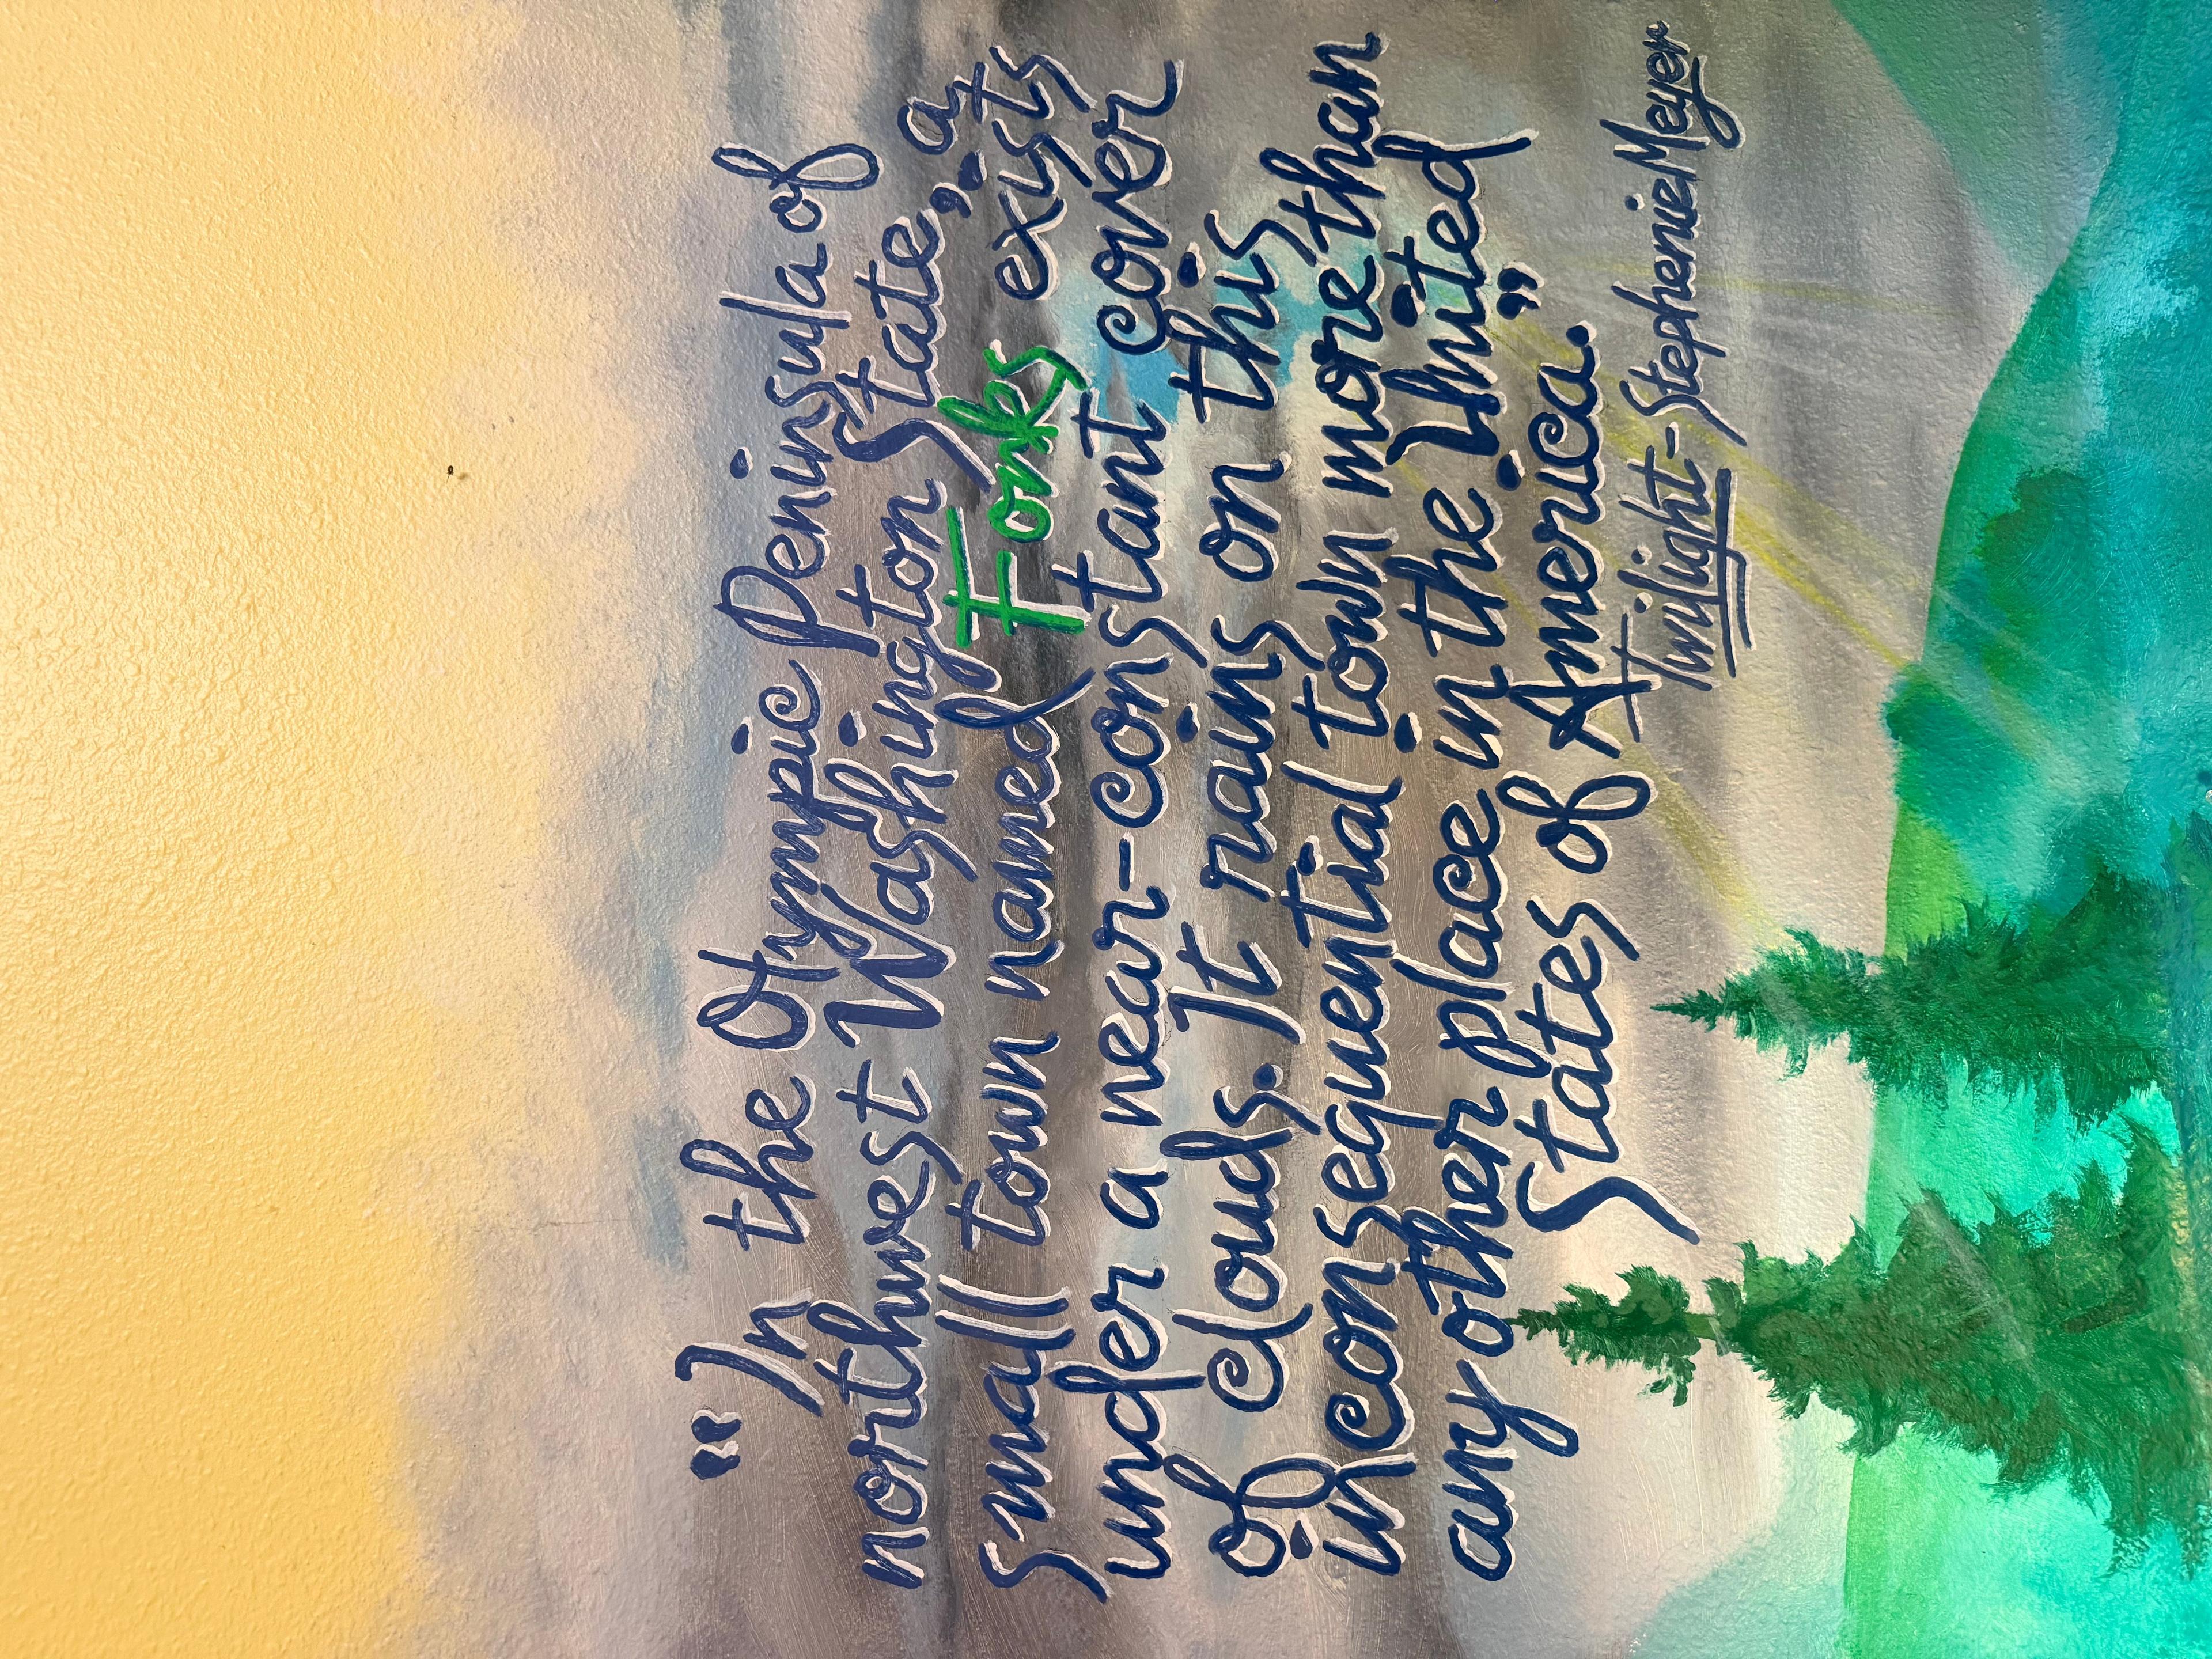 "In the Olympic Peninsula of
northwest Washington State, a
small town named Forks exists
under a near-constant cover
of clouds. It rains on this
inconsequential town more than
any other place in the United
States of America."
Twilight - Stephenie Meyer